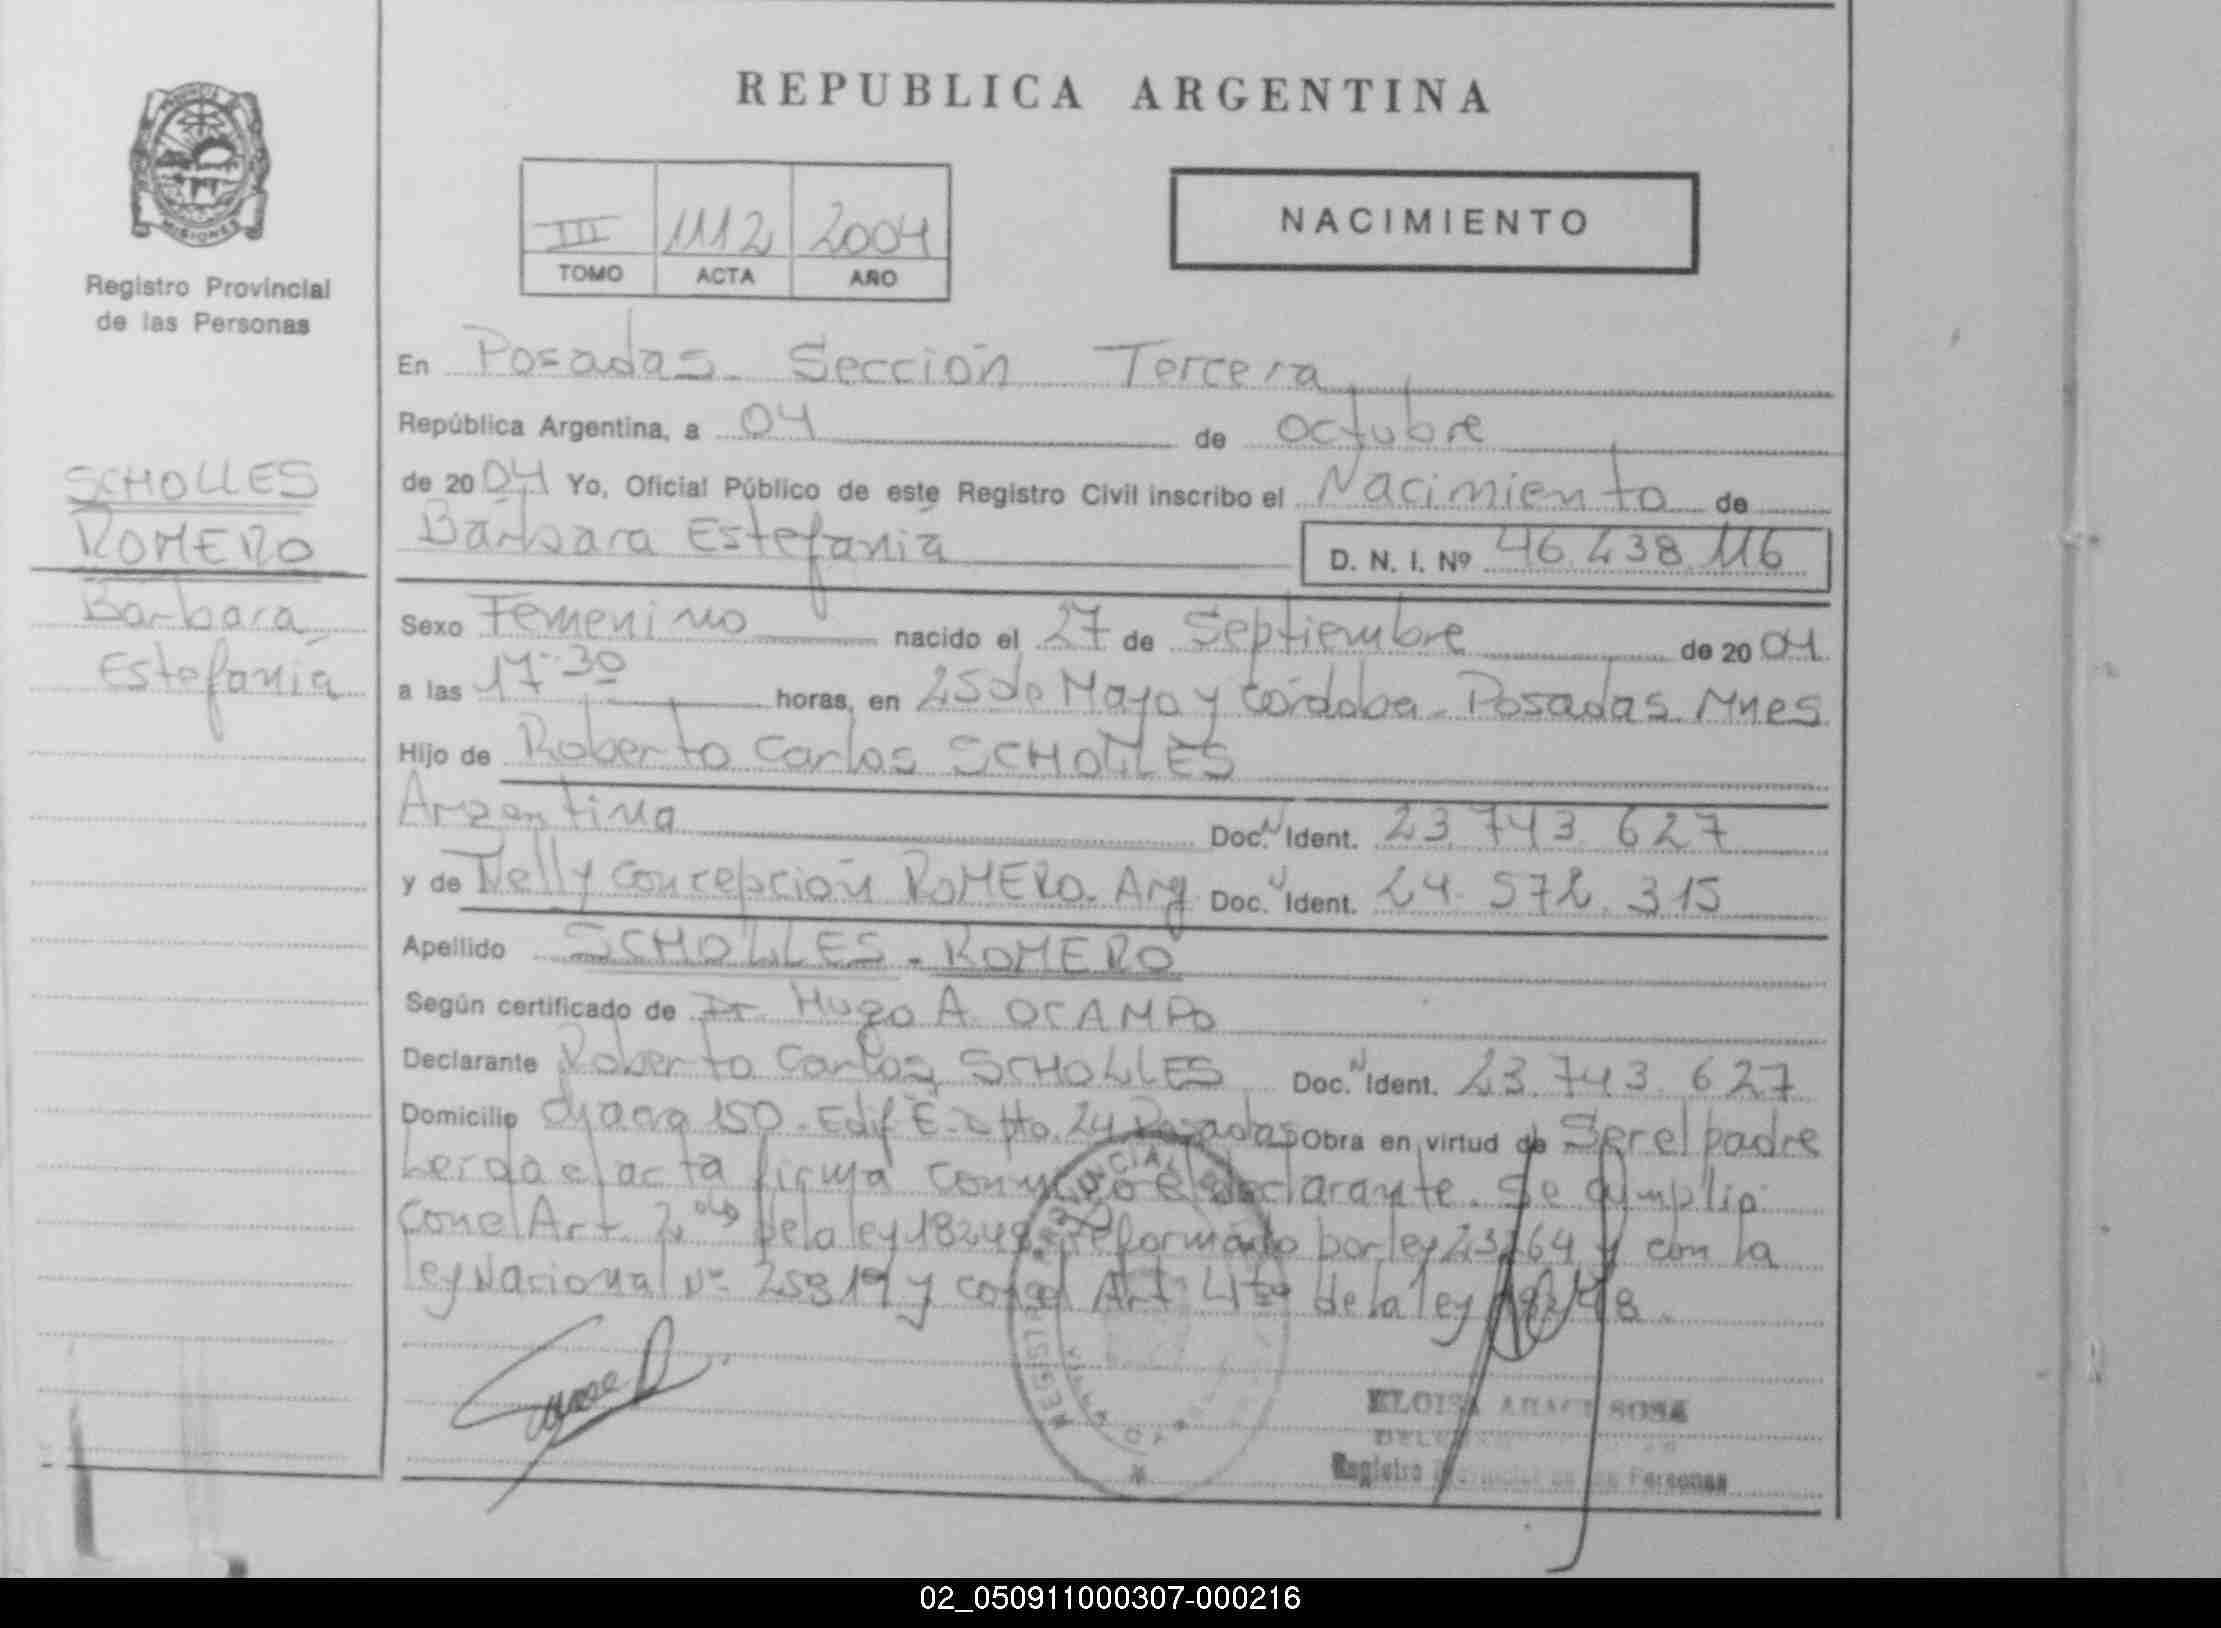 REPUBLICA ARGENTINA
PROVINCIA DE
MISIONES
Registro Provincial
de las Personas
III 1112 2004
TOMO ACTA AÑO
NACIMIENTO
En Posadas. Sección Tercera
República Argentina, a 04 de octubre
de 2004 Yo, Oficial Público de este Registro Civil inscribo el Nacimiento de
Bárbara Estefanía D. N. I. Nº 46.438.116
SCHOLLES
ROMERO
Bárbara
Estefanía
Sexo Femenino nacido el 27 de Septiembre de 2004
a las 17-30 horas, en 25 de Mayo y Córdoba. Posadas. Mnes
Hijo de Roberto Carlos SCHOLLES
Argentina Doc. Ident. 23.743.627
y de Nelly Concepción ROMERO. Arg Doc. Ident. 24.572.315
Apellido SCHOLLES - ROMERO
Según certificado de Dr. Hugo A. OCAMPO
Declarante Roberto Carlos SCHOLLES Doc. Ident. 23.743.627
Domicilio 150 - Edif E - Dpto. 24 Posadas Obra en virtud de Ser el padre
acta firma conmigo el declarante. Se cumplió
con el Art. 2do de la ley 18248 reformado por ley 23264 y con la
ley Nacional Nº y con el Art 4to de la ley 18248.
REGISTRO PROVINCIAL
ELOISA SOSA
Registro Provincial de las Personas
02_050911000307-000216